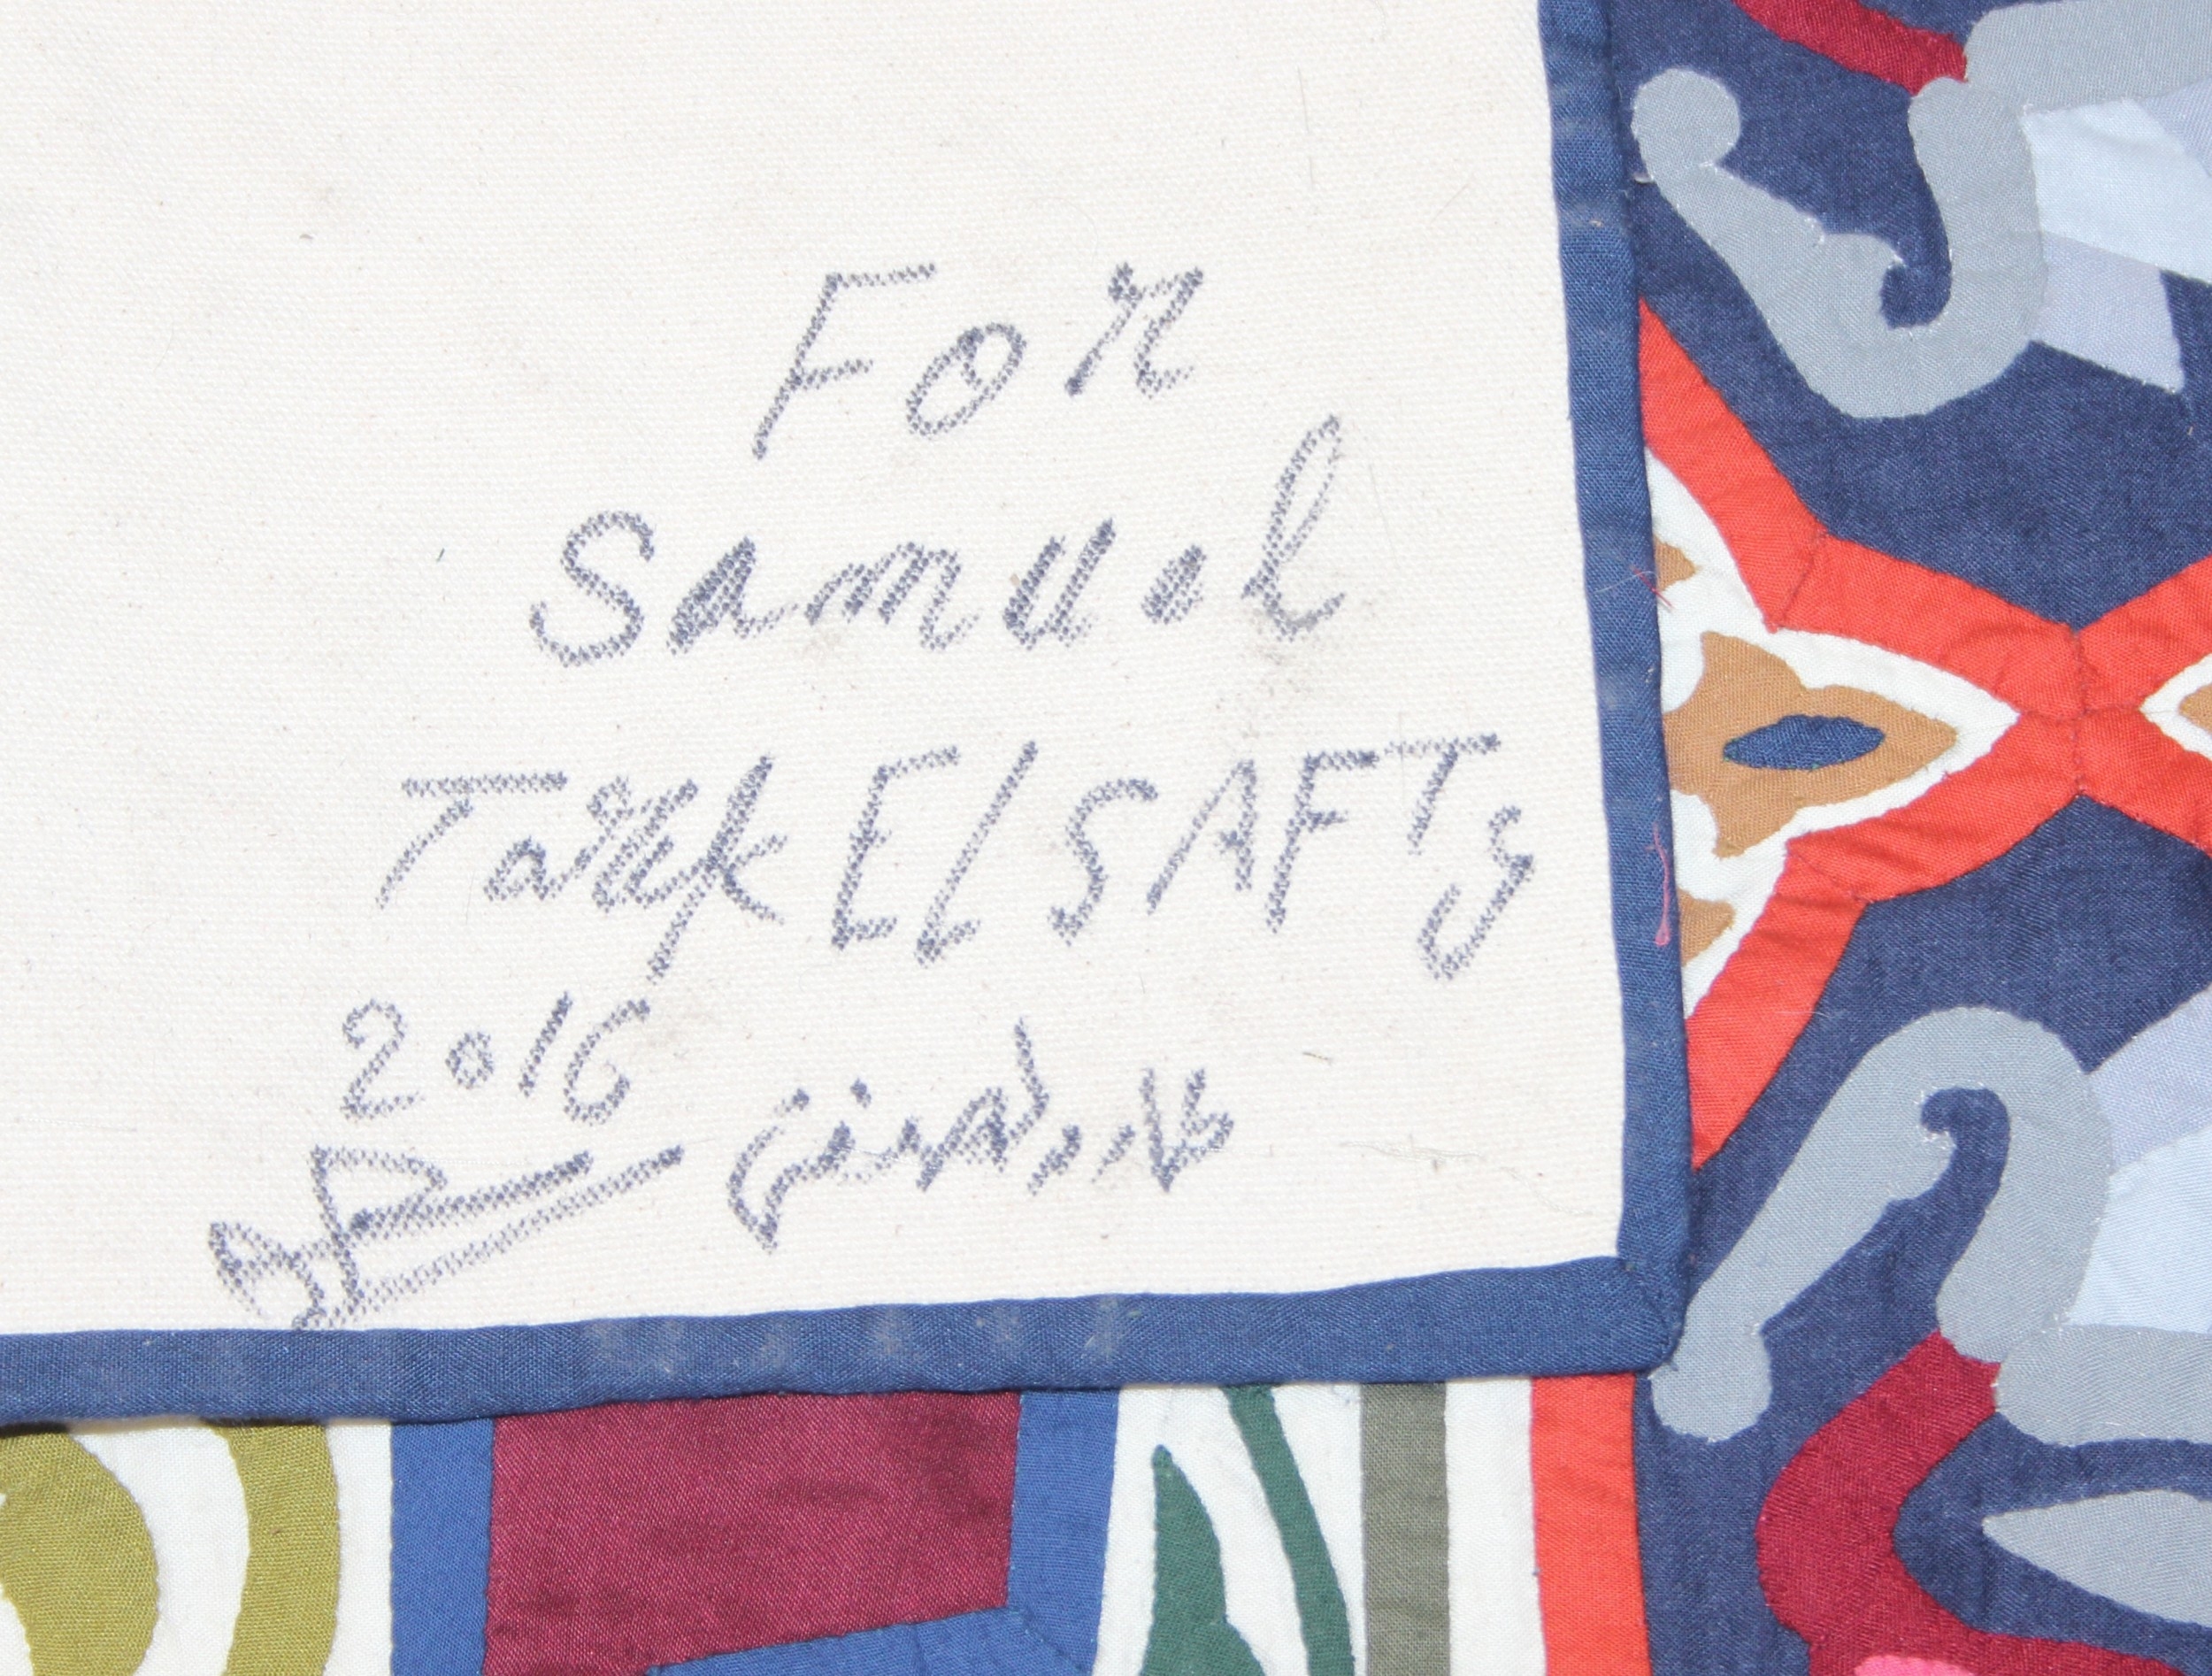 For
Samuel
Tarek El SAFTy
2016
طارق الصفتي